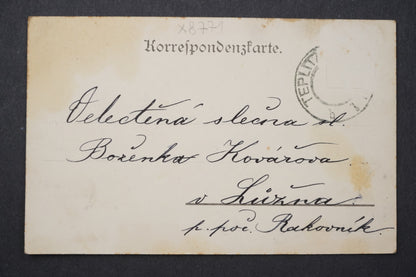 x8771
Korrespondenzkarte.
TEPLITZ
Velectěná slečna sl.
Boženka Kovářova
v Lužna
p. poč. Rakovník.